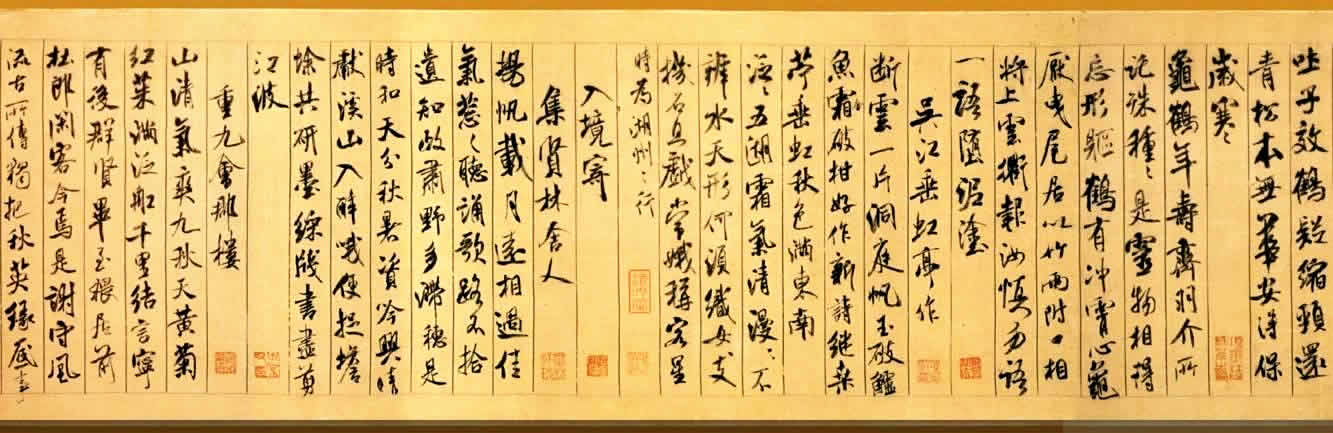 吐子效鶴疑縮頸還
青松本無華安得保
歲寒〻
龜鶴年壽齊羽介所
託殊種〻是靈物相得
忘形軀鶴有冲霄心龜
厭曳尾居以竹兩附口相
將上雲衢報汝慎勿語
一語墮泥塗
吳江垂虹亭作
断雲一片洞庭帆玉破鱸
魚霜破柑好作新詩継桑
苧垂虹秋色滿東南
泛〻五湖霜氣清漫〻不
辨水天形何須織女支
機石且戲常娥稱客星
時為湖州之行
入境寄
集賢林舍人
揚帆載月遠相過佳
氣葱〻聽誦歌路不拾
遺知政肅野多滯穗是
時和天分秋暑資吟興晴
獻溪山入醉哦便捉蟾
蜍共研墨綵牋書盡剪
江波
重九會郡樓
山清氣爽九秋天黃菊
紅茱滿泛船千里結言寧
有後群賢畢至猥居前
杜郎閑客今焉是謝守風
流古所傳獨把秋英緣底事